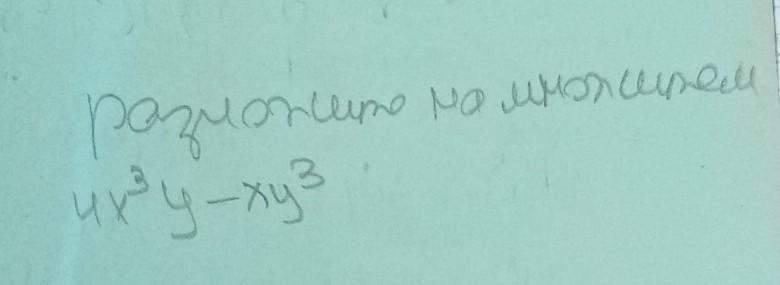 разложить на множители
4x³y-xy³